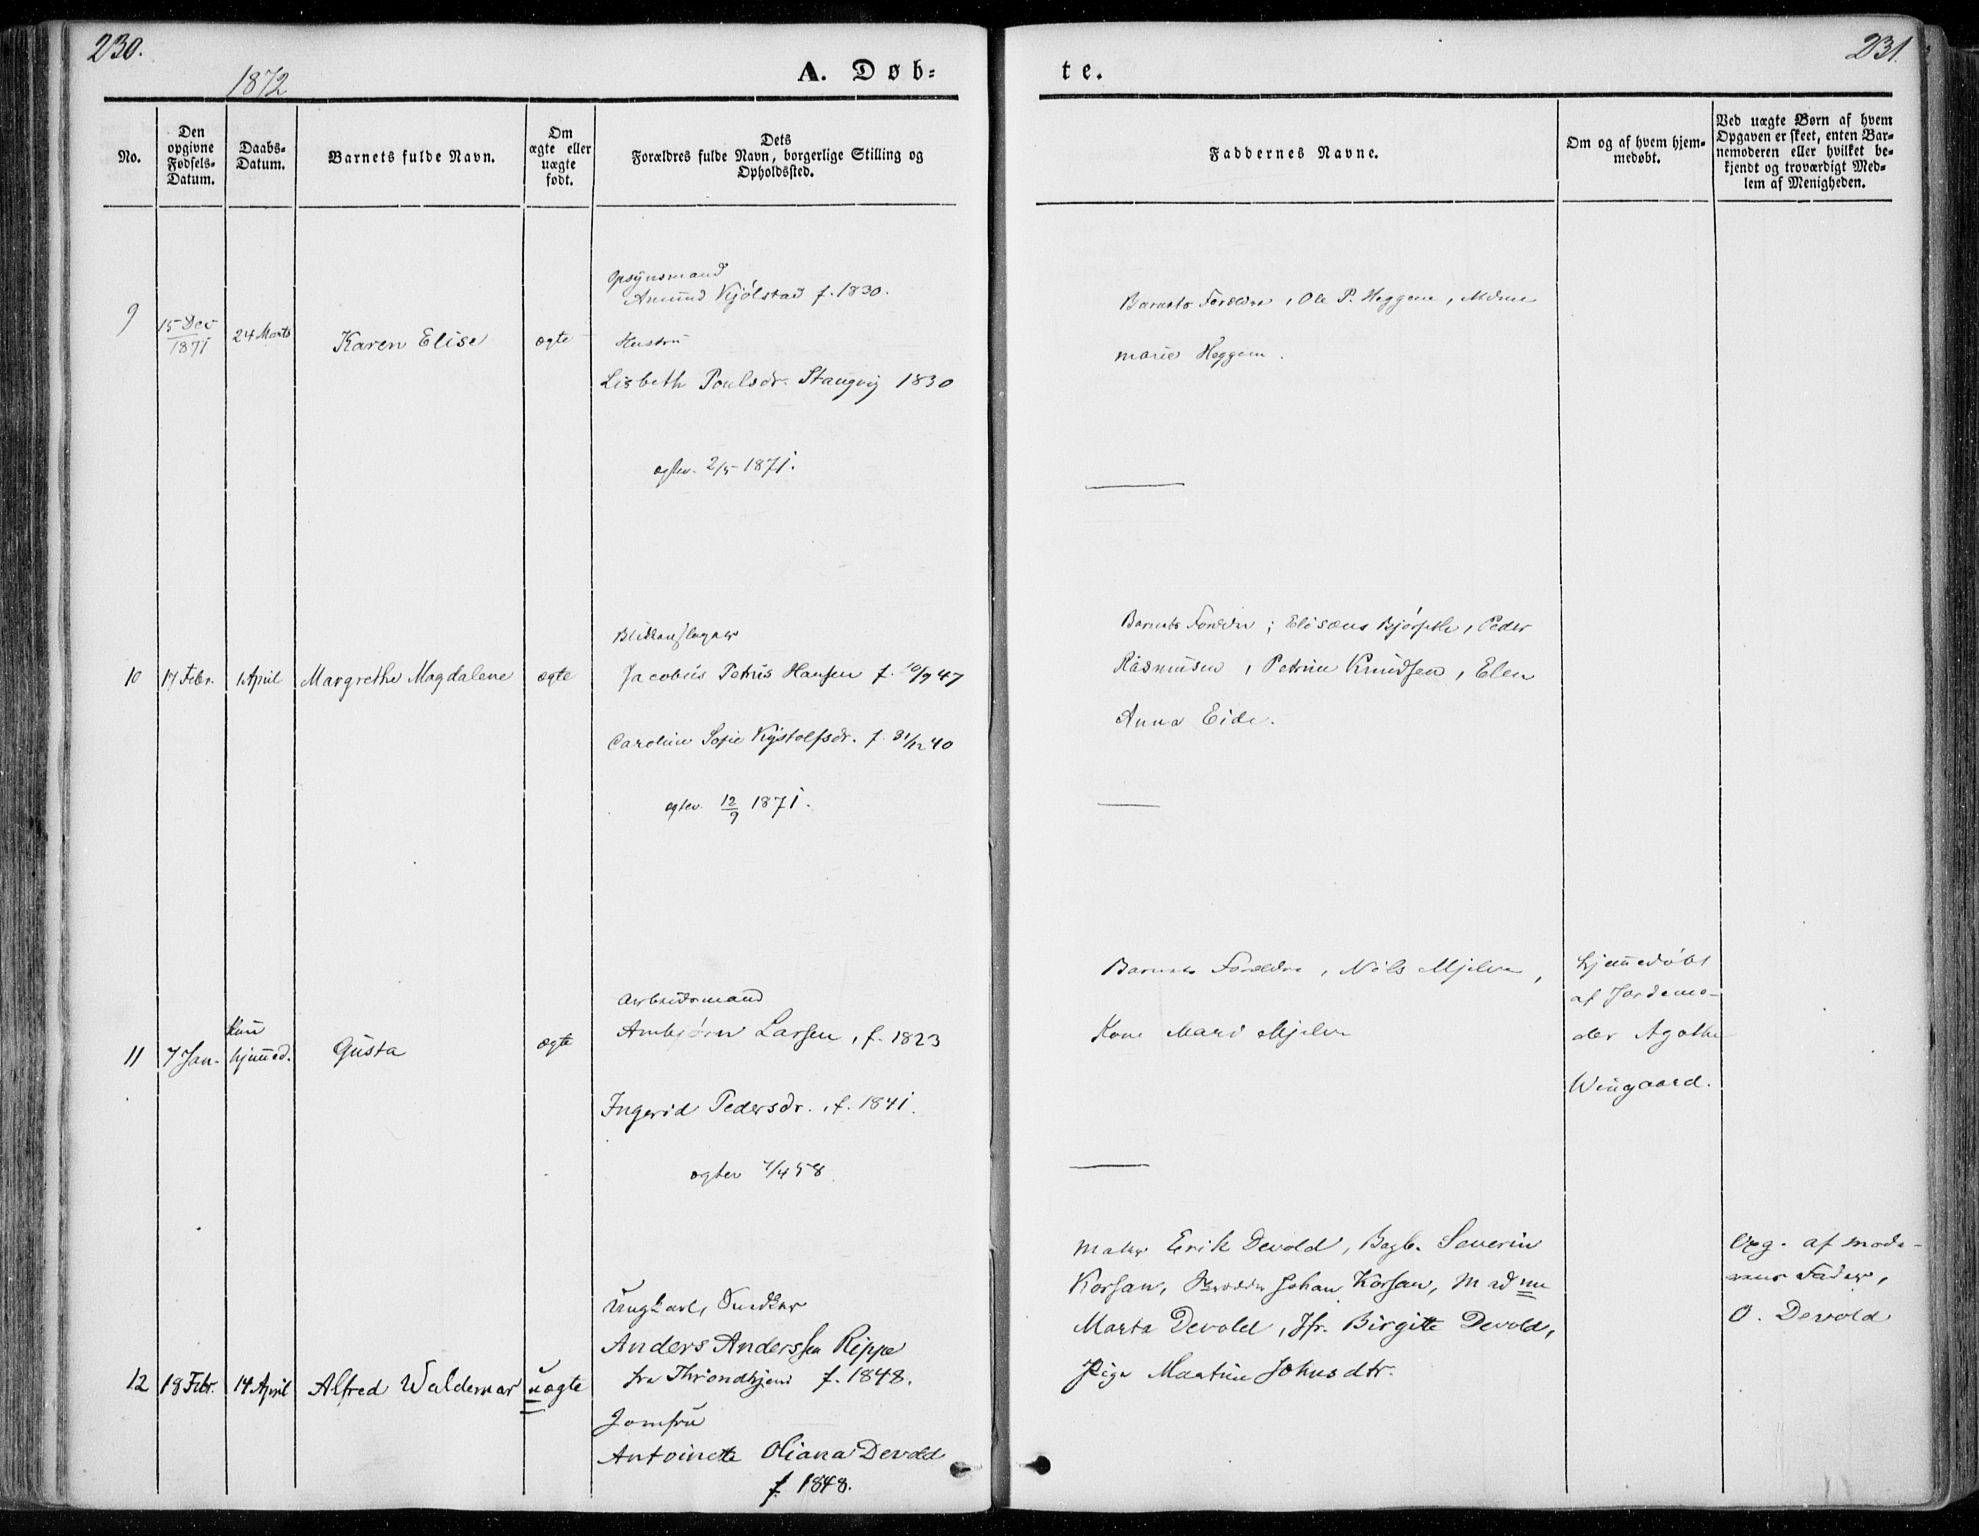 230.
1872
A. Døb=
No.
Den opgivne Fødsels-Datum.
Daabs-Datum.
Barnets fulde Navn.
Om ægte eller uægte født.
Dets Forældres fulde Navn, borgerlige Stilling og Opholdssted.
9
15 Dec 1871
24 Marts
Karen Elise
ægte
Opsynsmand
Amund Kjølstad f. 1830.
Hustru
Lisbeth Poulsdr. Stangvig 1830
ægtev. 2/5 1871.
10
17 Febr.
1 April
Margrethe Magdalene
ægte
Blikkenslager
Jacobus Petrus Hansen f. 10/9 47
Caroline Sofie Kystolfsdr. f. 31/12 40
ægtev. 12/9 1871.
11
7 Jan.
kun hjemmed.
Gusta
ægte
Arbeidsmand
Arnbjørn Larsen, f. 1823
Ingerid Pedersdr. f. 1841.
ægtev 58
12
18 Febr.
14 April
Alfred Waldemar
uægte
Ungkarl, Snedker
Anders Anderssen Rippe
fra Throndhjem f. 1848.
Jomfru
Antoinette Oliana Devold
f. 1848.
231.
te.
Faddernes Navne.
Om og af hvem hjemmedøbt.
Ved uægte Børn af hvem Opgaven er skeet, enten Barnemoderen eller hvilket bekjendt og troværdigt Medlem af Menigheden.
Barnets Forældre, Ole P. Heggem,
marie Heggem.
Barnets Forældre; Elisæus, Peder
Rasmusen, Petrine Knudsen, Elen
Anna Eide.
Barnets Forældre, Nils Mjelve,
Kone Mari Mjelve
hjemmedøbt
af Jordemo-
der Agathe
Wingaard.
Maler Erik Devold, Bagb. Severin
Korsan, Johan Korsan, Madme
Marta Devold, Jfr. Birgitte Devold,
Pige Martine Johnsdtr.
Opg. af mode-
rens Fader,
O. Devold